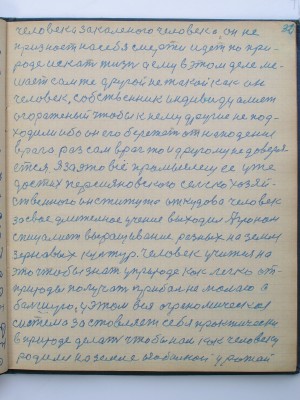 человека закаленого человека, он не
признает на себя смерти идет по при-
роде искать жизн делу в этом деле ме-
шает сам же другой не такой как он
человек, собственник индивидуалист
огораженый чтобы к нему другие не под-
ходили ибо он его бережет от нападения
врага раз сам враг то и другому не доверя-
ется. Я за это всё промыслился уже
достях персияновского сельско хозяй-
ственного института откудова человек
за свое длительное учение выходил Агроном
специалист выращивание разных на земли
зерновых культур. Человек учится на
это чтобы знат у природе как легко от
природы получать прибал не малаю а
балшую, у этом вся агрономическая
система заставляет себя практически
в природе делат чтобы нам как человеку
родила на земле небывалой урожай